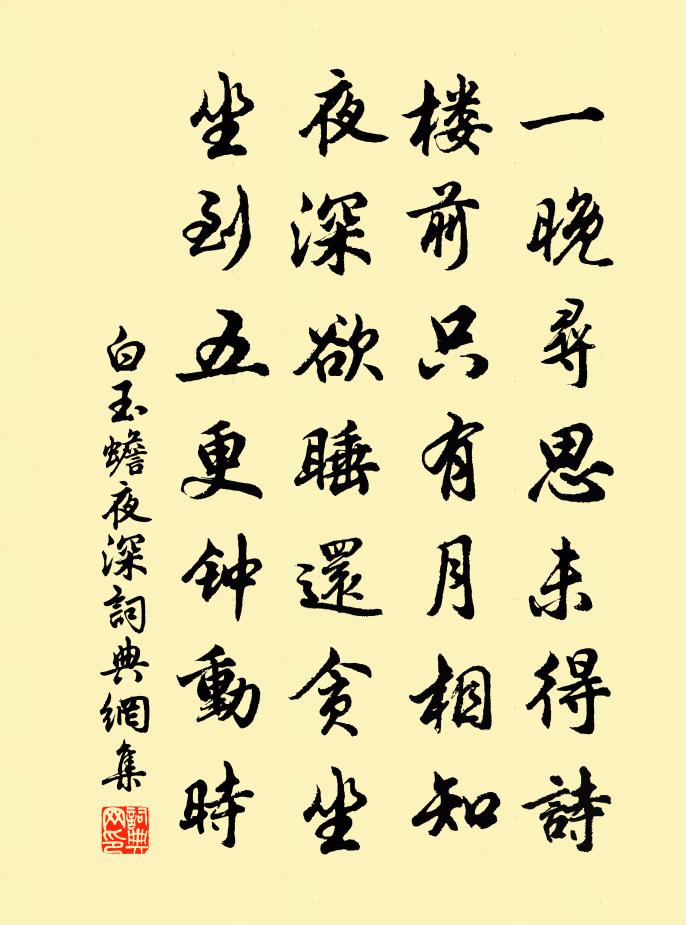 一晚尋思未得詩
楼前只有月相知
夜深欲睡還贪坐
坐到五更钟動時
白玉蟾夜深詞典網集
詞典
网印